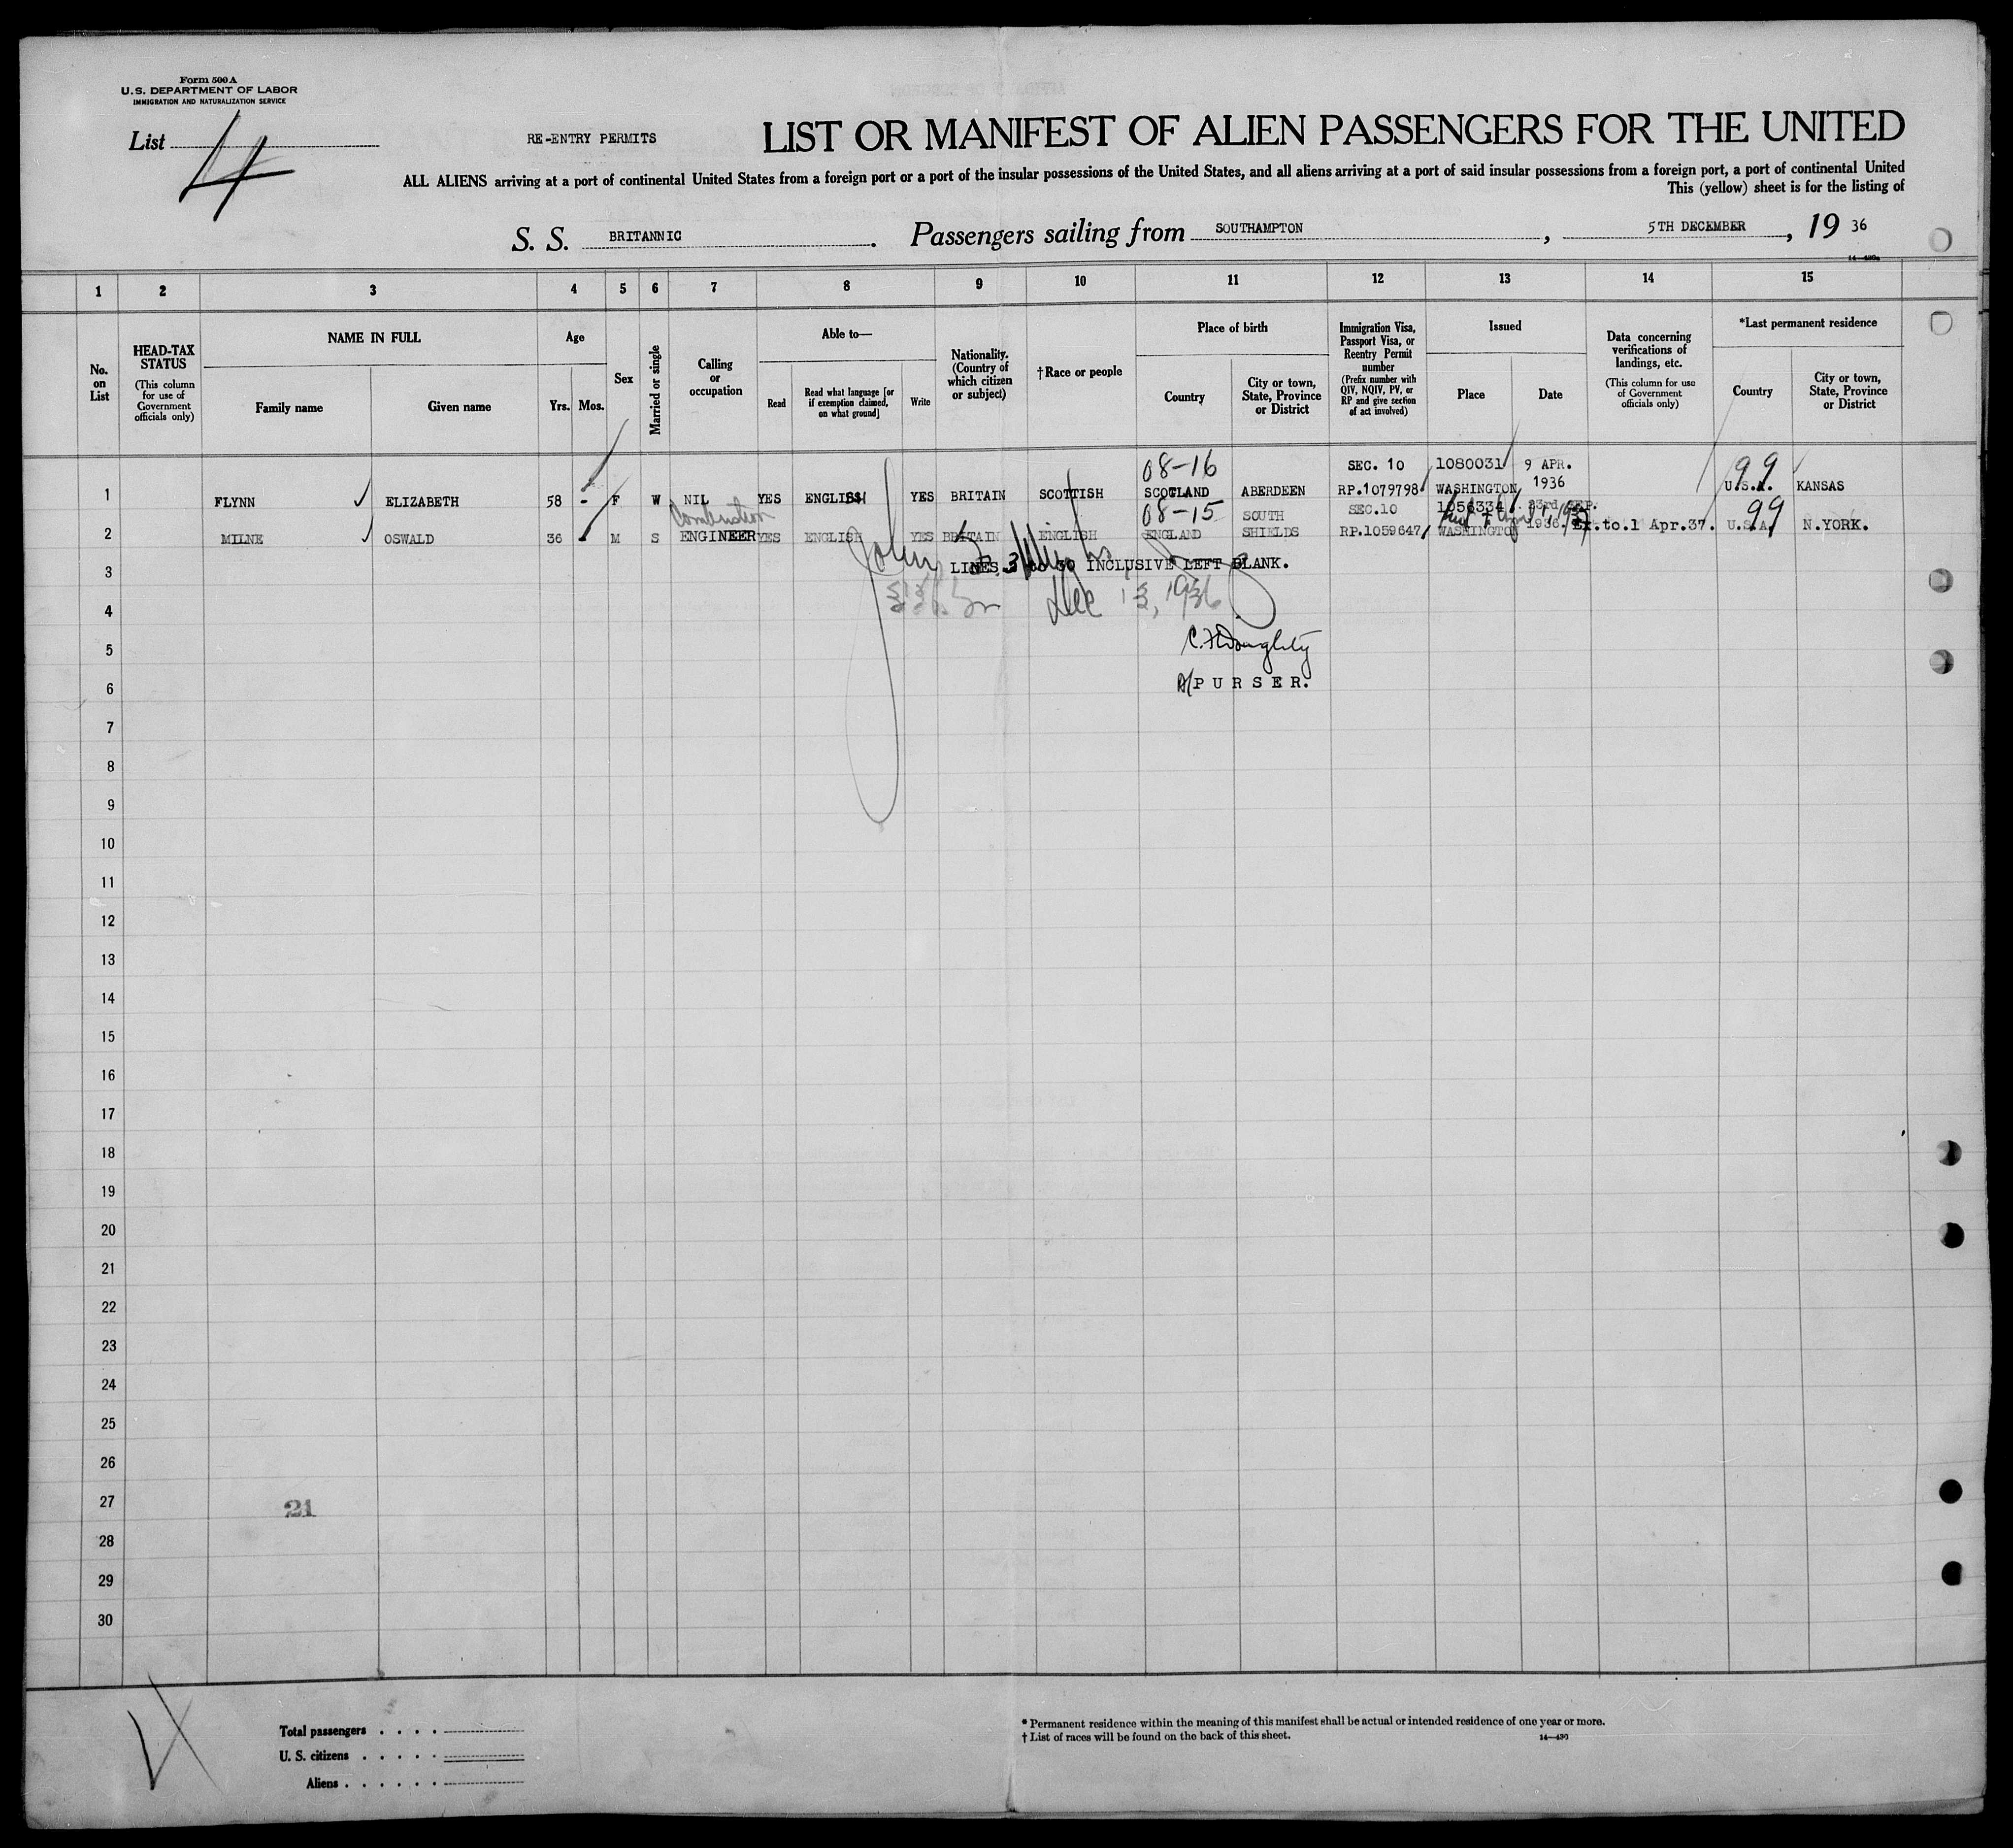 Form 500 A
U.S. DEPARTMENT OF LABOR
IMMIGRATION AND NATURALIZATION SERVICE
List 4
RE-ENTRY PERMITS
LIST OR MANIFEST OF ALIEN PASSENGERS FOR THE UNITED
ALL ALIENS arriving at a port of continental United States from a foreign port or a port of the insular possessions of the United States, and all aliens arriving at a port of said insular possessions from a foreign port, a port of continental United
This (yellow) sheet is for the listing of
S. S. BRITANNIC . Passengers sailing from SOUTHAMPTON , 5TH DECEMBER , 19 36
1 2 3 4 5 6 7 8 9 10 11 12 13 14 15
No. on List
HEAD-TAX STATUS
(This column for use of Government officials only)
NAME IN FULL
Family name
Given name
Age
Yrs. Mos.
Sex
Married or single
Calling or occupation
Able to—
Read
Read what language [or if exemption claimed, on what ground]
Write
Nationality. (Country of which citizen or subject)
†Race or people
Place of birth
Country
City or town, State, Province or District
Immigration Visa, Passport Visa, or Reentry Permit number
(Prefix number with QIV, NQIV, PV, or RP and give section of act involved)
Issued
Place
Date
Data concerning verifications of landings, etc.
(This column for use of Government officials only)
*Last permanent residence
Country
City or town, State, Province or District
08-16 SEC. 10 1080031 9 APR. 99
1 FLYNN ELIZABETH 58 - F W NIL YES ENGLISH YES BRITAIN SCOTTISH SCOTLAND ABERDEEN RP.1079798 WASHINGTON 1936 U.S.A. KANSAS
Combustion 08-15 SOUTH SEC.10 1056334 23rd SEP. 99
2 MILNE OSWALD 36 - M S ENGINEER YES ENGLISH YES BRITAIN ENGLISH ENGLAND SHIELDS RP.1059647 WASHINGTON 1936. Ex.to.1 Apr.37. U.S.A. N.YORK.
3 LINES 3 to 30 INCLUSIVE LEFT BLANK.
4 Dec 13, 1936
5
6 A/ PURSER.
7
8
9
10
11
12
13
14
15
16
17
18
19
20
21
22
23
24
25
26
27 21
28
29
30
Total passengers . . . .
U. S. citizens . . . . .
Aliens . . . . . .
* Permanent residence within the meaning of this manifest shall be actual or intended residence of one year or more.
† List of races will be found on the back of this sheet.
14—430